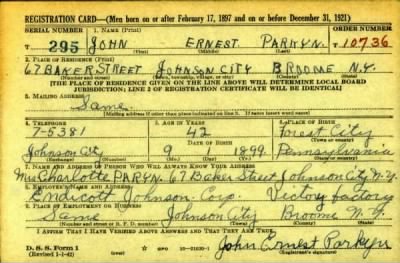 REGISTRATION CARD—(Men born on or after February 17, 1897 and on or before December 31, 1921)
SERIAL NUMBER 1. NAME (Print) ORDER NUMBER
T 295 JOHN ERNEST PARKYN. T 10736
(First) (Middle) (Last)
2. PLACE OF RESIDENCE (Print)
67 BAKER STREET JOHNSON CITY BROOME N.Y.
(Number and street) (Town, township, village, or city) (County) (State)
[THE PLACE OF RESIDENCE GIVEN ON THE LINE ABOVE WILL DETERMINE LOCAL BOARD
JURISDICTION; LINE 2 OF REGISTRATION CERTIFICATE WILL BE IDENTICAL]
3. MAILING ADDRESS
Same
[Mailing address if other than place indicated on line 2. If same insert word same]
4. TELEPHONE 5. AGE IN YEARS 6. PLACE OF BIRTH
7-5381 42 Forest City
DATE OF BIRTH (Town or county)
Johnson City 9 1899 Pennsylvania
(Exchange) (Number) (Mo.) (Day) (Yr.) (State or country)
7. NAME AND ADDRESS OF PERSON WHO WILL ALWAYS KNOW YOUR ADDRESS
Mrs Charlotte PARYN. 67 Baker Street Johnson City N.Y.
8. EMPLOYER'S NAME AND ADDRESS
Endicott Johnson Corp. Victory factory
9. PLACE OF EMPLOYMENT OR BUSINESS
Same Johnson City Broome N.Y.
(Number and street or R. F. D. number) (Town) (County) (State)
I AFFIRM THAT I HAVE VERIFIED ABOVE ANSWERS AND THAT THEY ARE TRUE.
D. S. S. Form 1 John Ernest Parkyn
(Revised 1-1-42) GPO 16—21630-1 (Registrant's signature)